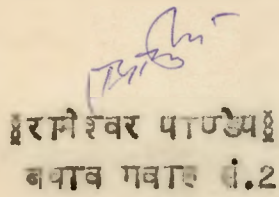 रामेश्वर पाण्डेय
बचाव गवाह सं.2